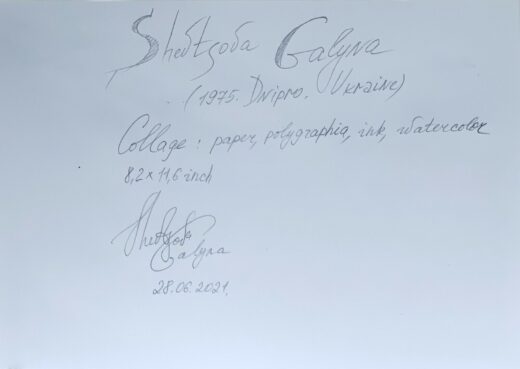 Shevtsova Galyna
(1975. Dnipro. Ukraine)
Collage: paper, polygraphia, ink, watercolor
8,2 x 11,6 inch
Shevtsova
Galyna
28.06.2021.